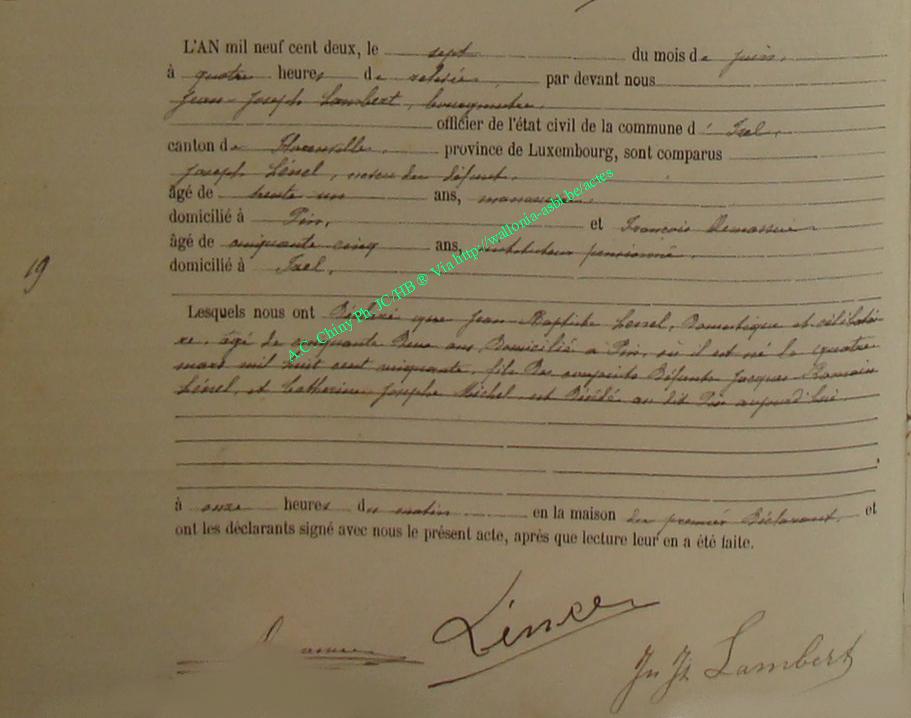 L'AN mil neuf cent deux, le sept du mois de juin,
à quatre heures de relevée, par devant nous
Jean-Joseph Lambert, bourgmestre,
officier de l'état civil de la commune d' Izel,
canton de Florenville, province de Luxembourg, sont comparus
Joseph Lénel, neveu du défunt,
âgé de trente un ans,
domicilié à Pin, et François
âgé de cinquante cinq ans, instituteur pensionné,
domicilié à Izel,
19
Lesquels nous ont Déclaré que Jean-Baptiste Domestique et célibatai-
re, âgé de cinquante Deux ans Domicilié à Pin, où il est né le quatre
mars mil huit cent cinquante, fils Des conjoints Défunts Jacques Romain
Lénel, et Catherine Josephe Michel, est Décédé au dit Pin aujourd'hui
à onze heures du matin en la maison du premier Déclarant, et
ont les déclarants signé avec nous le présent acte, après que lecture leur en a été faite.
Jn Jh Lambert
A.C. Chiny Ph. JC/HB ® Via http://wallonia-asbl.be/actes